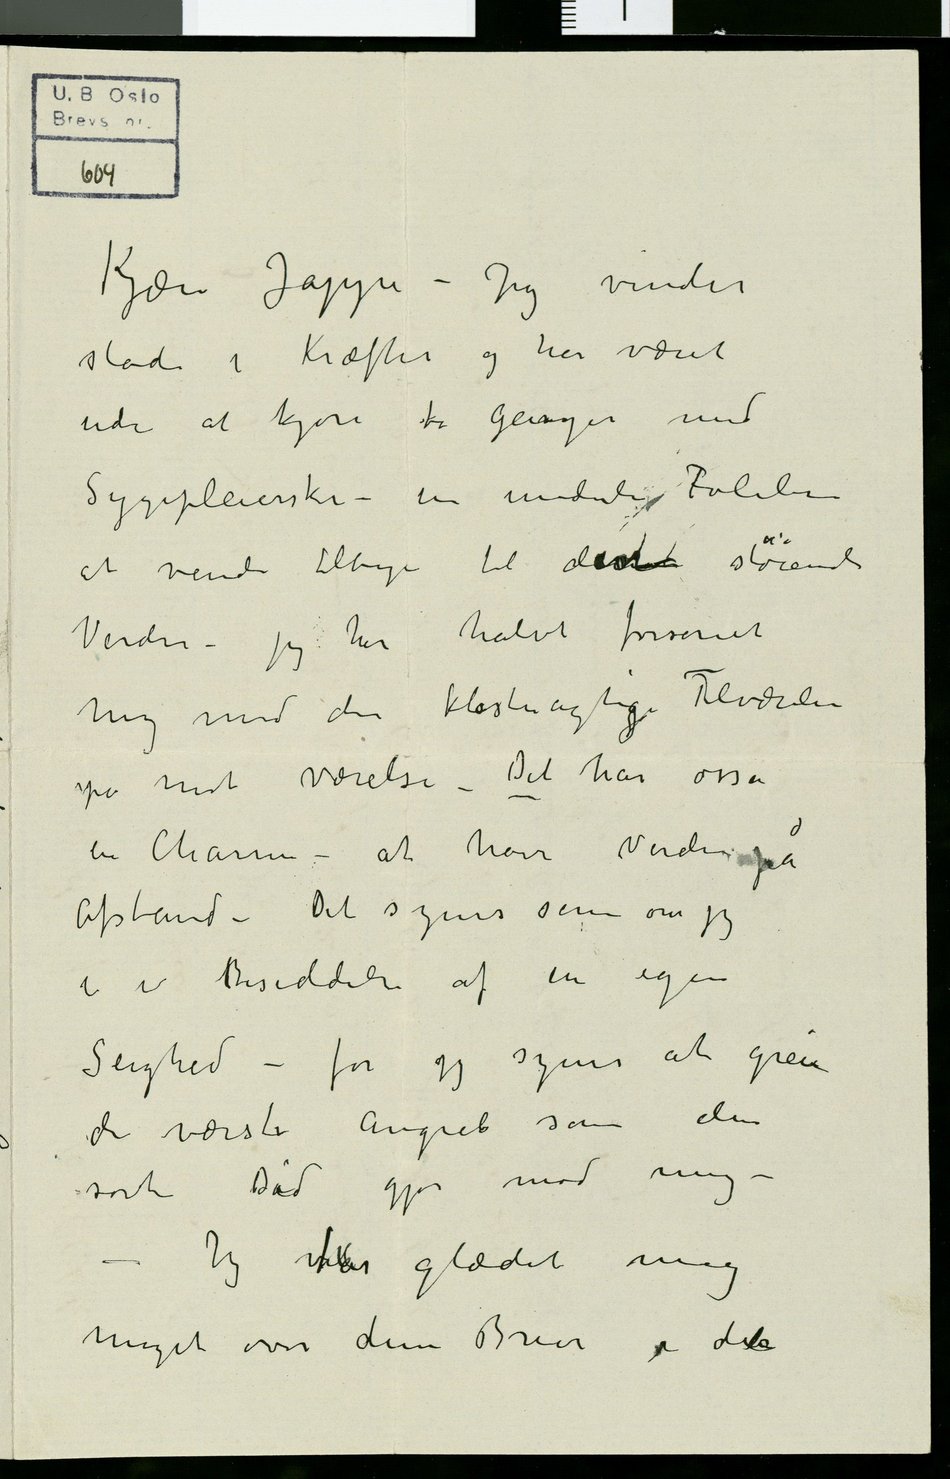 U.B Oslo
Brevs. nr.
604
Kjære Jappe – Jeg vinder
stadi i Kræfter og har været
ude at kjøre to Ganger med
Sygepleierske – en underlig Følelse
at vende tilbage til støiende
Verden – jeg har halvt forsonet
mig med den klosteragtige Tilværelse
på mit værelse – Det har osså
en Charme – at have Verden på
Afstand – Det synes som om jeg
er i Besiddelse af en egen
Seighed – for jeg synes at greie
de værste Angreb som den
sorte Død gjør mod mig –
– Jeg har glædet mig
meget over dine Breve i det